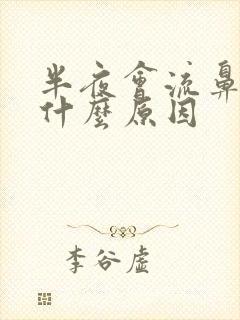 半夜會流鼻
什麼原因
李谷虛